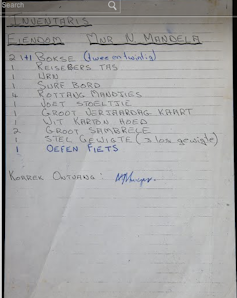 Search
INVENTARIS
EIENDOM MNR N. MANDELA
21+1 BOKSE (twee en twintig)
1 REISEBERS TAS
1 URN
1 SURF BORD
4 ROTTANG MANDJIES
1 VOET STOELTJIE
1 GROOT VERJAARDAG KAART
1 WIT KARTON HOED
2 GROOT SAMBRELE
1 STEL GEWIGTE (3 los gewigte)
1 OEFEN FIETS
KORREK ONTVANG: